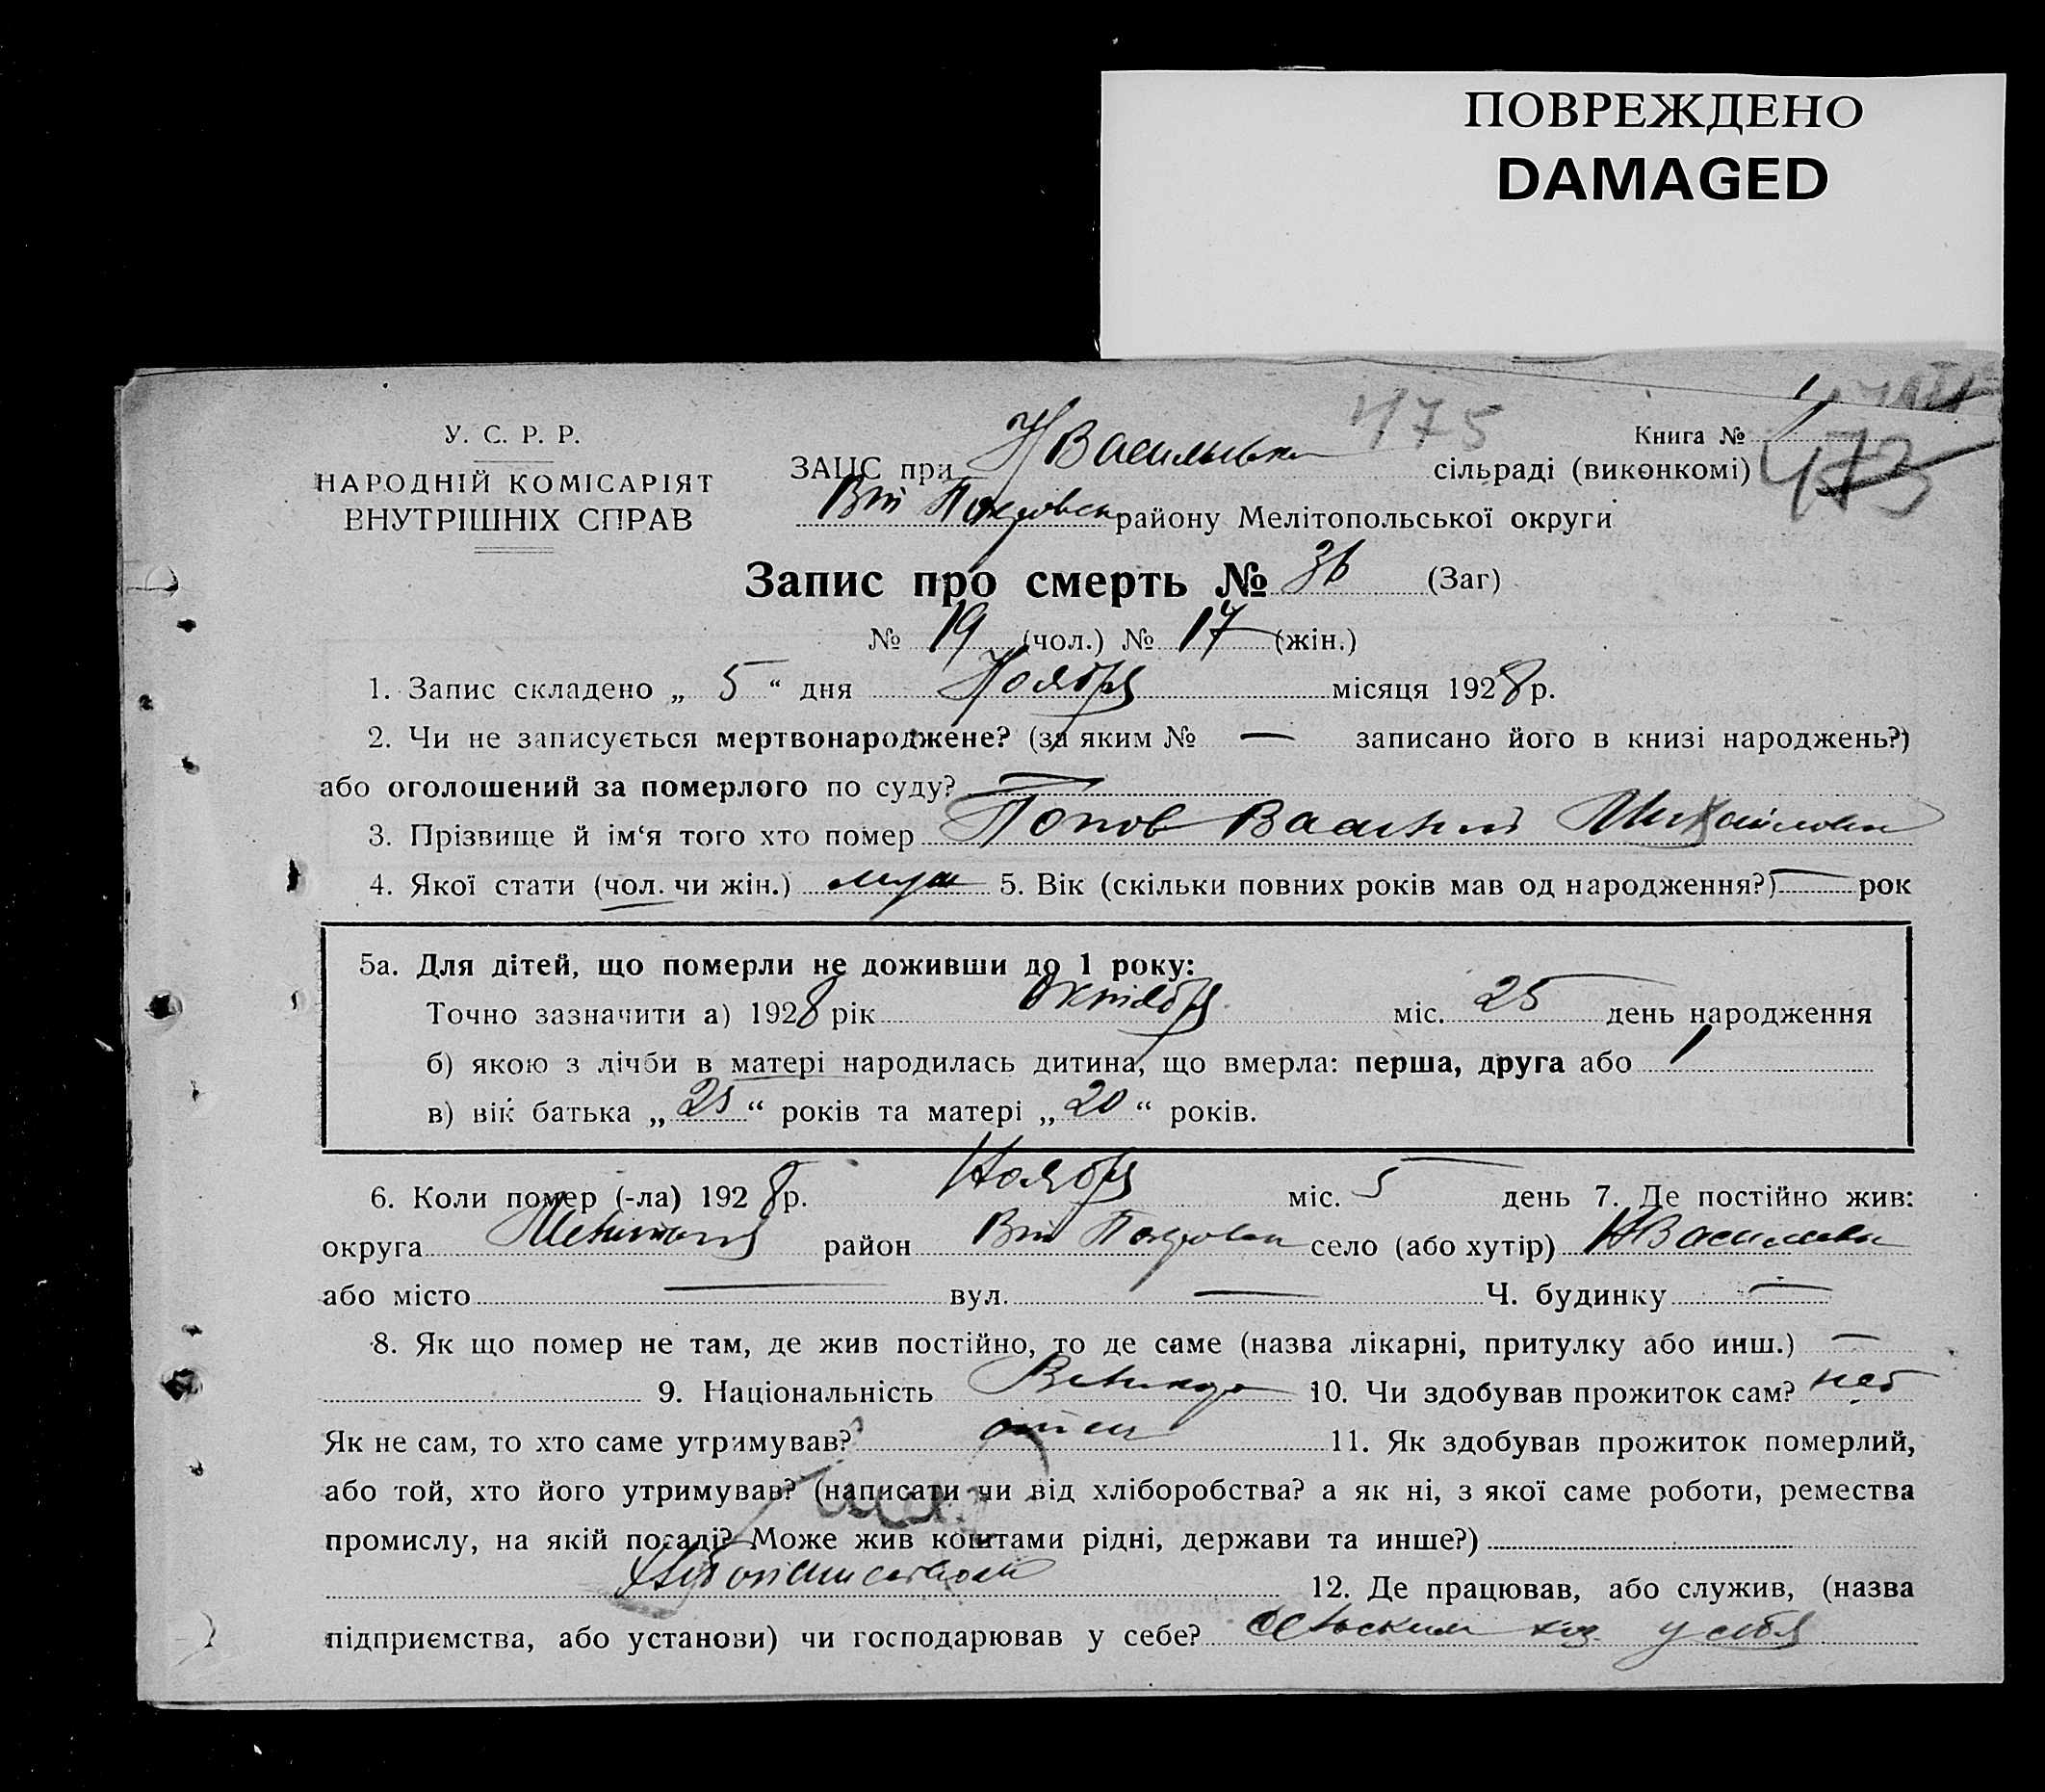 ПОВРЕЖДЕНО
DAMAGED
475
У. С. Р. Р.
НАРОДНІЙ КОМІСАРІЯТ
ВНУТРІШНІХ СПРАВ
Книга №
ЗАЦС при Н Васильевка сільраді (виконкомі) 473
району Мелітопольської округи
Запис про смерть № 36 (Заг)
№ 19 (чол.) № 17 (жін.)
1. Запис складено „ 5 “ дня Ноября місяця 1928 р.
2. Чи не записується мертвонароджене? (за яким № — записано його в книзі народжень?)
або оголошений за померлого по суду? —
3. Прізвище й ім‘я того хто помер Попов Василий Михайлович
4. Якої стати (чол. чи жін.) муж 5. Вік (скільки повних років мав од народження?) — рок
5а. Для дітей, що померли не доживши до 1 року:
Точно зазначити а) 1928 рік октября міс. 25 день народження
б) якою з лічби в матері народилась дитина, що вмерла: перша, друга або 1
в) вік батька „ 25 “ років та матері „ 20 “ років.
6. Коли помер (-ла) 1928 р. Ноября міс. 5 день 7. Де постійно жив:
округа район село (або хутір) Н Васильевк
або місто — вул. — Ч. будинку —
8. Як що помер не там, де жив постійно, то де саме (назва лікарні, притулку або инш.) —
9. Національність 10. Чи здобував прожиток сам? нет
Як не сам, то хто саме утримував? отец 11. Як здобував прожиток померлий,
або той, хто його утримував? (написати чи від хліборобства? а як ні, з якої саме роботи, ремества
промислу, на якій посаді? Може жив коштами рідні, держави та инше?)
Хлебопашеством 12. Де працював, або служив, (назва
підприємства, або установи) чи господарював у себе? сельским хоз. у себя